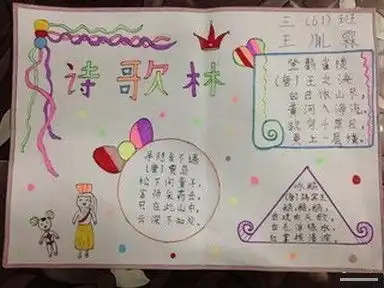 三(61)班
王胤霖
诗歌林
登鹳雀楼
(唐)王之涣
白日依山尽,
黄河入海流。
欲穷千里目,
更上一层楼。
寻隐者不遇
(唐)贾岛
松下问童子,
言师采药去。
只在此山中,
云深不知处。
咏鹅
(唐)骆宾王
鹅鹅鹅,
曲项向天歌,
白毛浮绿水,
红掌拨清波。